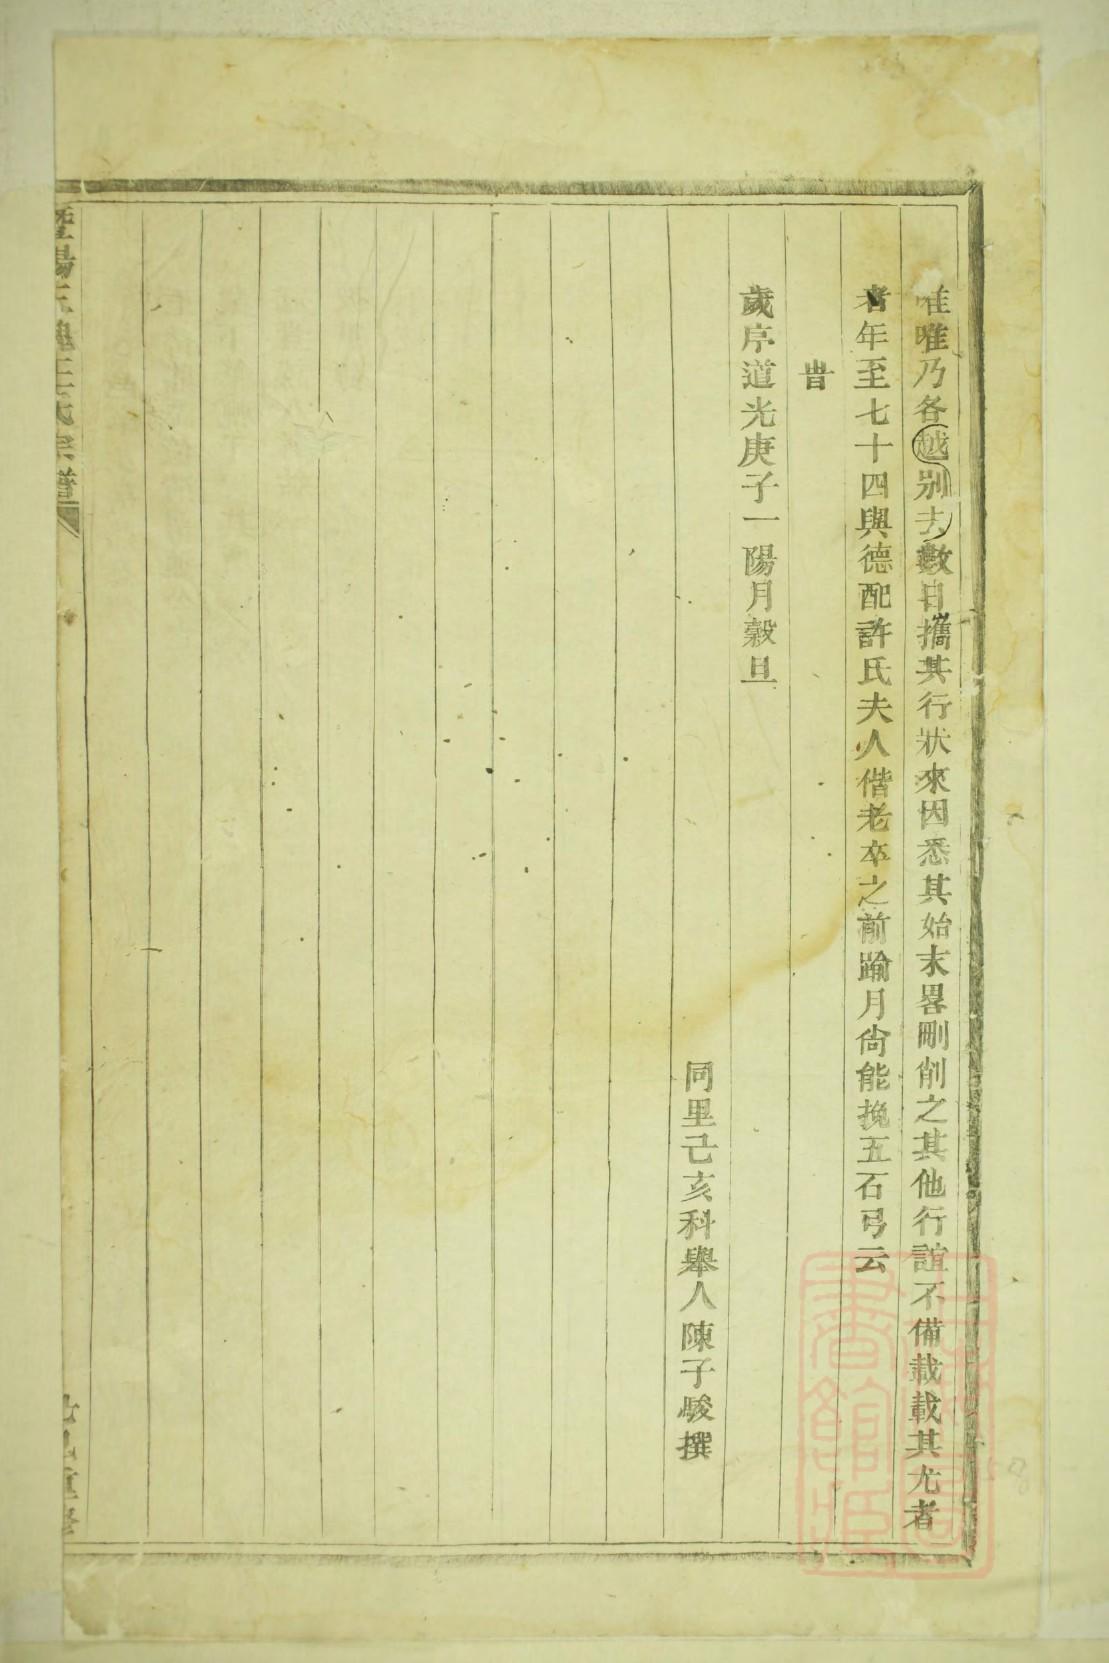 唯唯乃各越別去數日攜其行狀來因悉其始末畧刪削之其他行誼不備載載其尤者
者年至七十四與德配許氏夫人偕老卒之前踰月尙能挽五石弓云
旹
歲序道光庚子一陽月穀旦
同里己亥科舉人陳子駿撰
暨陽
氏宗譜